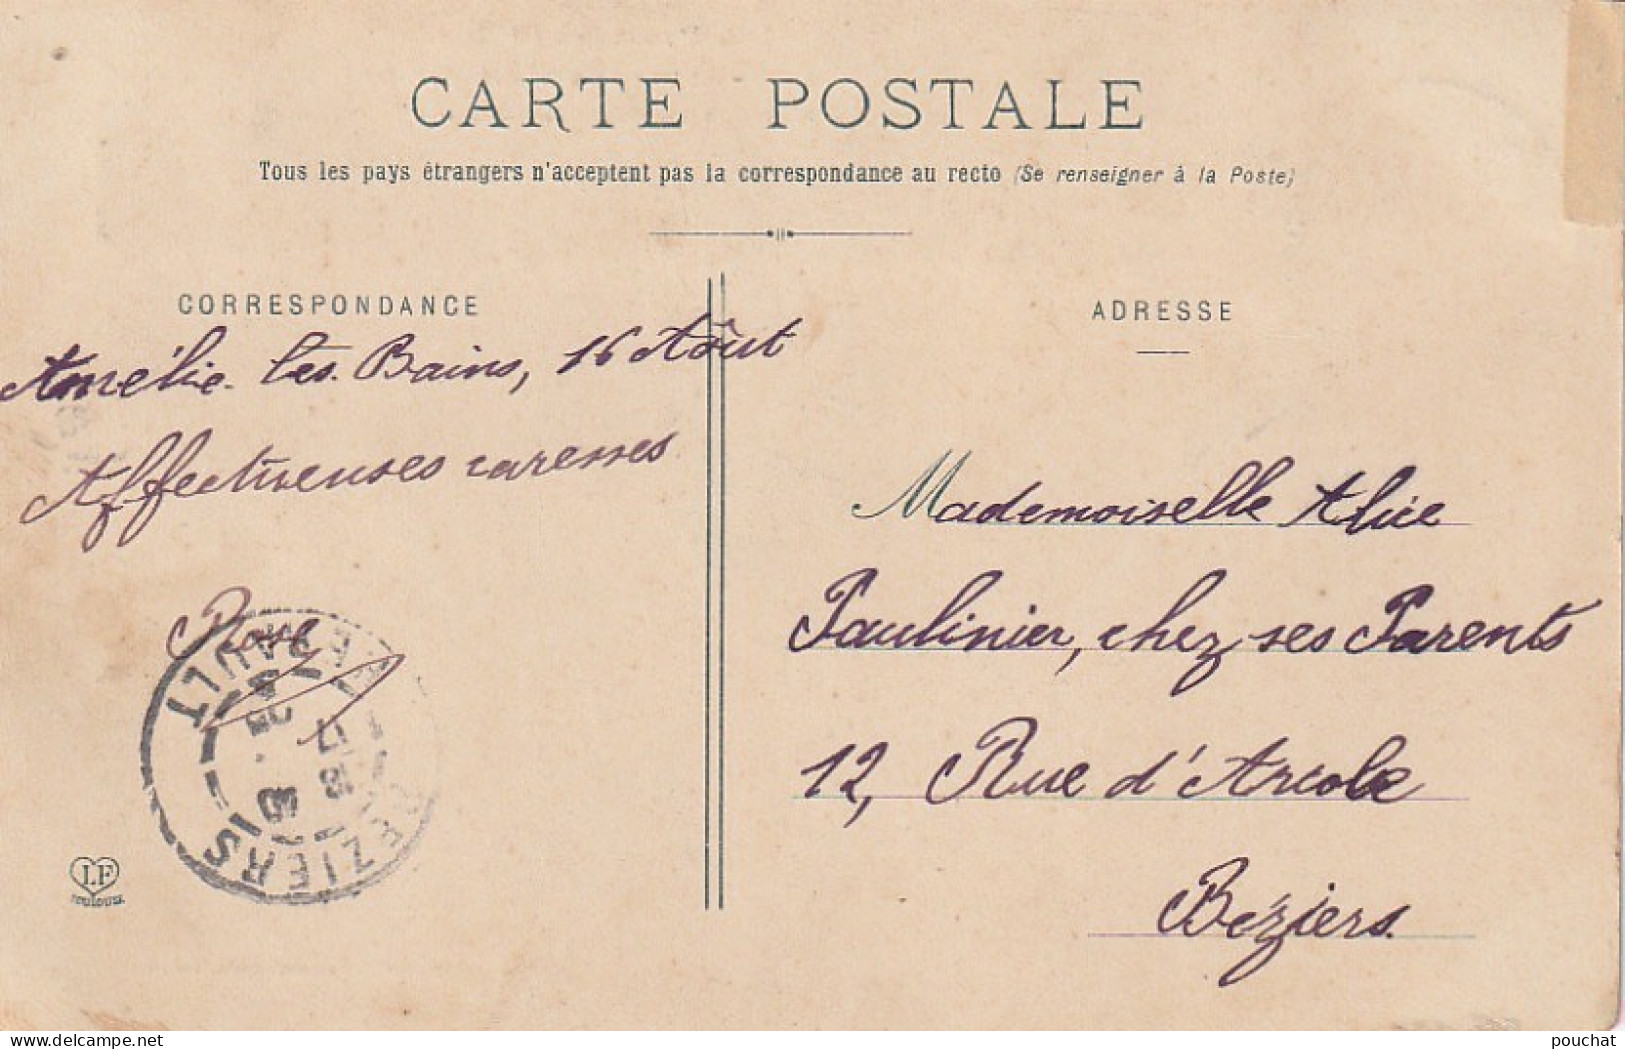 CARTE POSTALE
Tous les pays étrangers n'acceptent pas la correspondance au recto (Se renseigner à la Poste)
CORRESPONDANCE
Amélie-les-Bains, 16 Aôut
Affectueuses caresses
Rose
BEZIERS
HERAULT
LF
TOULOUSE
ADRESSE
Mademoiselle Alice
Paulinier, chez ses Parents
12, Rue d'Arcole
Béziers.
delcampe.net
pouchat